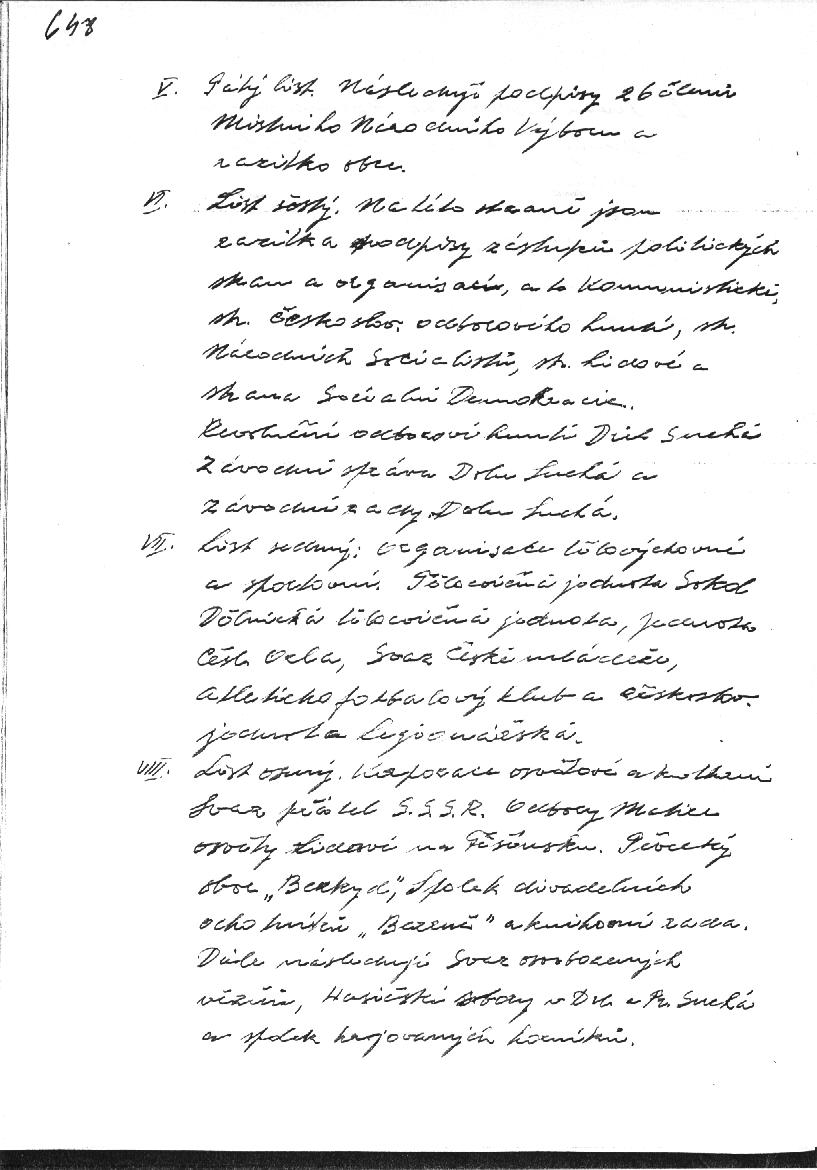 648
V. Pátý list. Následují podpisy 26 členů
Místního Národního Výboru a
razítko obce.
VI. List šestý. Na této straně jsou
razítka podpisy zástupců politických
stran a organisací, a to Kommunistické,
str. českoslov. odborového hnutí, str.
Národních Socialistů, str. Lidové a
strana Sociální Demokracie.
Revoluční odborové hnutí Důl Suchá
Závodní správa Dolu Suchá a
závodní rady Dolu Suchá.
VII. List sedmý: Organisace tělovýchovné
a sportovní. Tělocvičná jednota Sokol
Dělnická tělocvičná jednota, Jednota
Čsl. Orla, Svaz České mládeže,
Atleticko fotbalový klub a českoslov.
jednota Legionářská.
VIII. List osmý. Korporace osvětové a kulturní
Svaz přátel S.S.S.R. Odbory Matice
osvěty Lidové na Těšínsku. Pěvecký
sbor „ Spolek divadelních
ochotníků „ " a knihovní rada.
Dále následují Svaz osvobozených
vězňů, Hasičské sbory v Dol. a Pr. Suché
a spolek horníků.